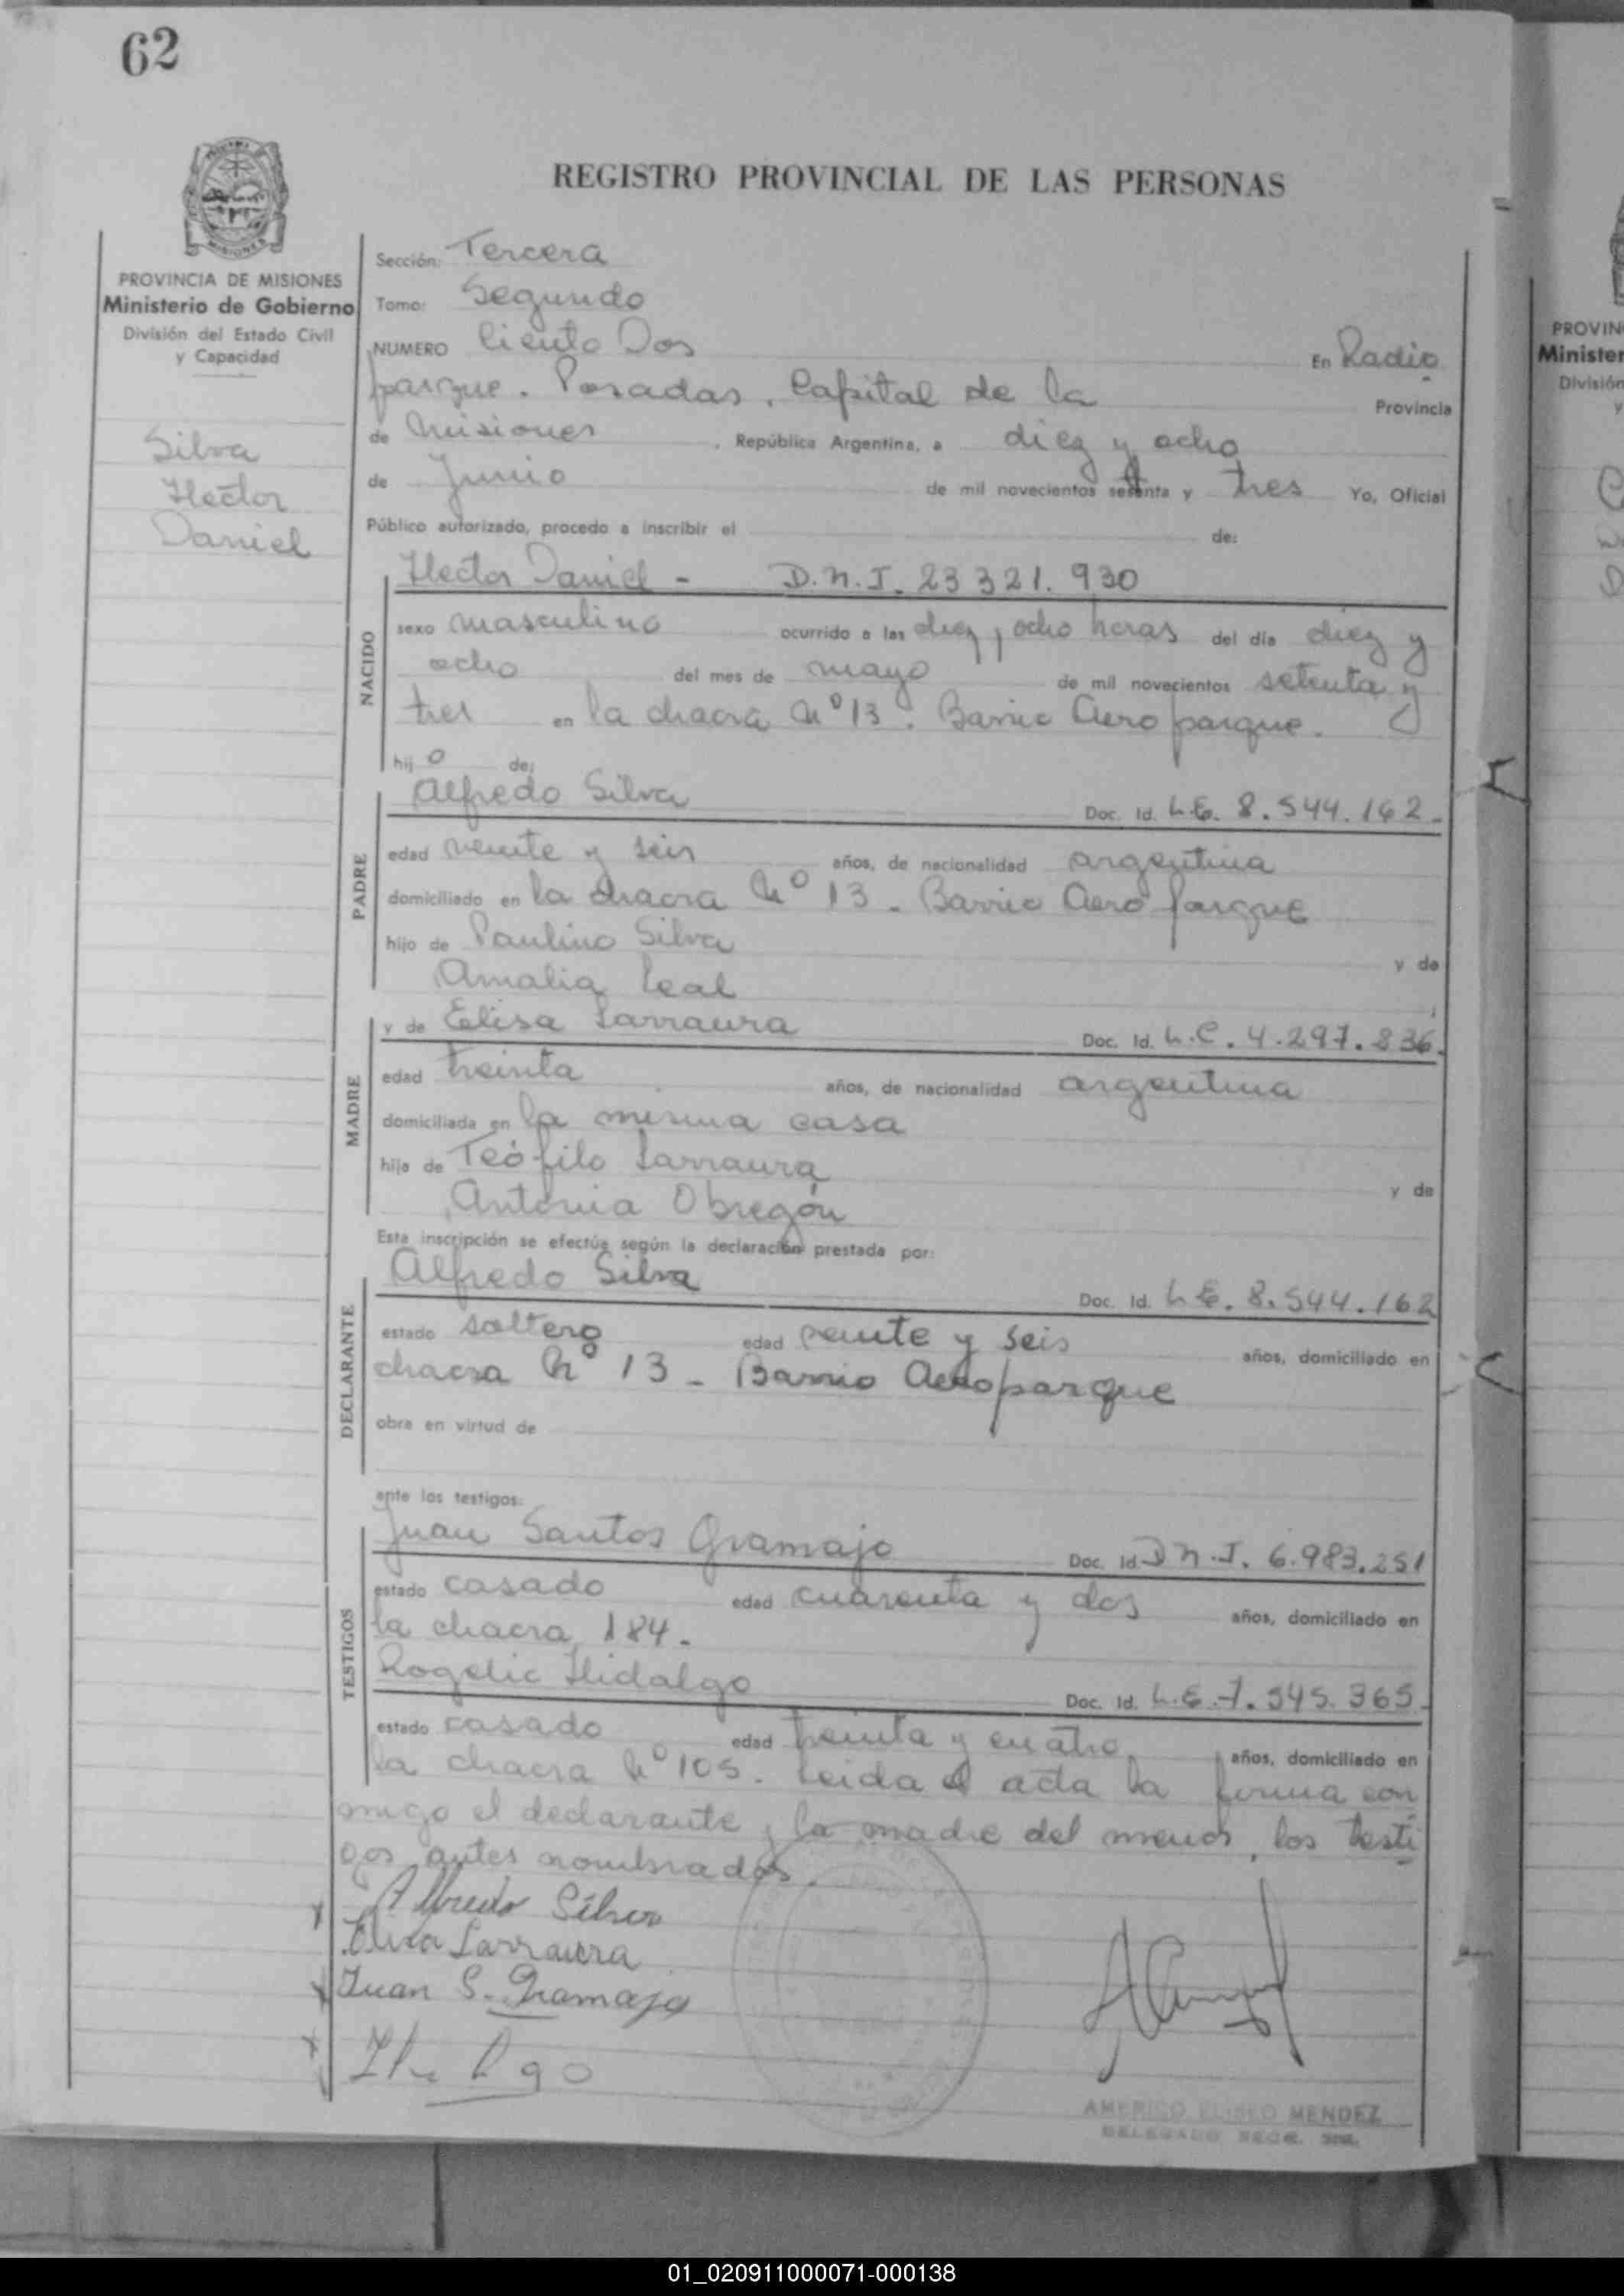 62
REGISTRO PROVINCIAL DE LAS PERSONAS
PROVINCIA DE MISIONES
Ministerio de Gobierno
División del Estado Civil
y Capacidad
Silva
Hector
Daniel
Sección: Tercera
Tomo: Segundo
NUMERO Ciento Dos En Radio
parque. Posadas, Capital de la Provincia
de Misiones, República Argentina, a diez y ocho
de Junio de mil novecientos setenta y tres Yo, Oficial
Público autorizado, procedo a inscribir el de:
Hector Daniel - D.N.I. 23 321. 930
NACIDO
sexo masculino ocurrido a las diez y ocho horas del día diez y
ocho del mes de mayo de mil novecientos setenta y
tres en la chacra Nº 13. Barrio Aeroparque.
hijo de:
Alfredo Silva Doc. Id. L.E. 8.544.162-
PADRE
edad veinte y seis años, de nacionalidad argentina
domiciliado en la chacra Nº 13 - Barrio Aero parque
hijo de Paulino Silva y de
Amalia Leal
MADRE
y de Elisa Larraura Doc. Id. L.C. 4.297.836.
edad treinta años, de nacionalidad argentina
domiciliada en la misma casa
hija de Teófilo Larraura y de
Antonia Obregón
Esta inscripción se efectúa según la declaración prestada por:
Alfredo Silva Doc. Id. L.E. 8.544.162
DECLARANTE
estado soltero edad veinte y seis años, domiciliado en
chacra Nº 13 - Barrio Aeroparque
obra en virtud de
ante los testigos:
Juan Santos Gramajo Doc. Id. D.N.I. 6.983.251
TESTIGOS
estado casado edad cuarenta y dos años, domiciliado en
la chacra 184.
Rogelio Hidalgo Doc. Id. L.E. 7.545.365.
estado casado edad treinta y cuatro años, domiciliado en
la chacra Nº 105. Leida el acta la firma con
migo el declarante, la madre del menor, los testi
gos antes nombrados.
Alfredo Silva
Elisa Larraura
Juan S. Gramajo
AMERICO ELISEO MENDEZ
PROVIN
Minister
División
y
01_020911000071-000138